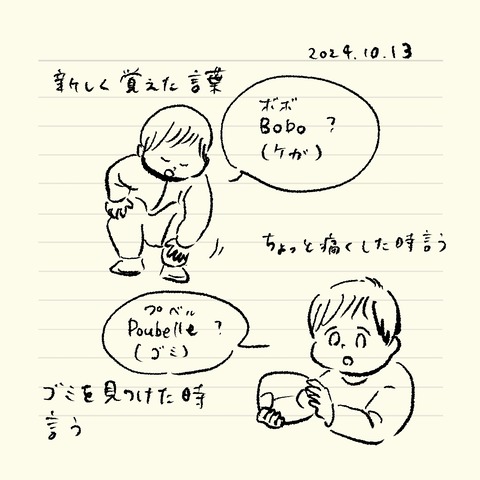 2024.10.13
新しく覚えた言葉
ボボ
Bobo ?
(ケガ)
ちょっと痛くした時言う
プベル
Poubelle ?
(ゴミ)
ゴミを見つけた時
言う